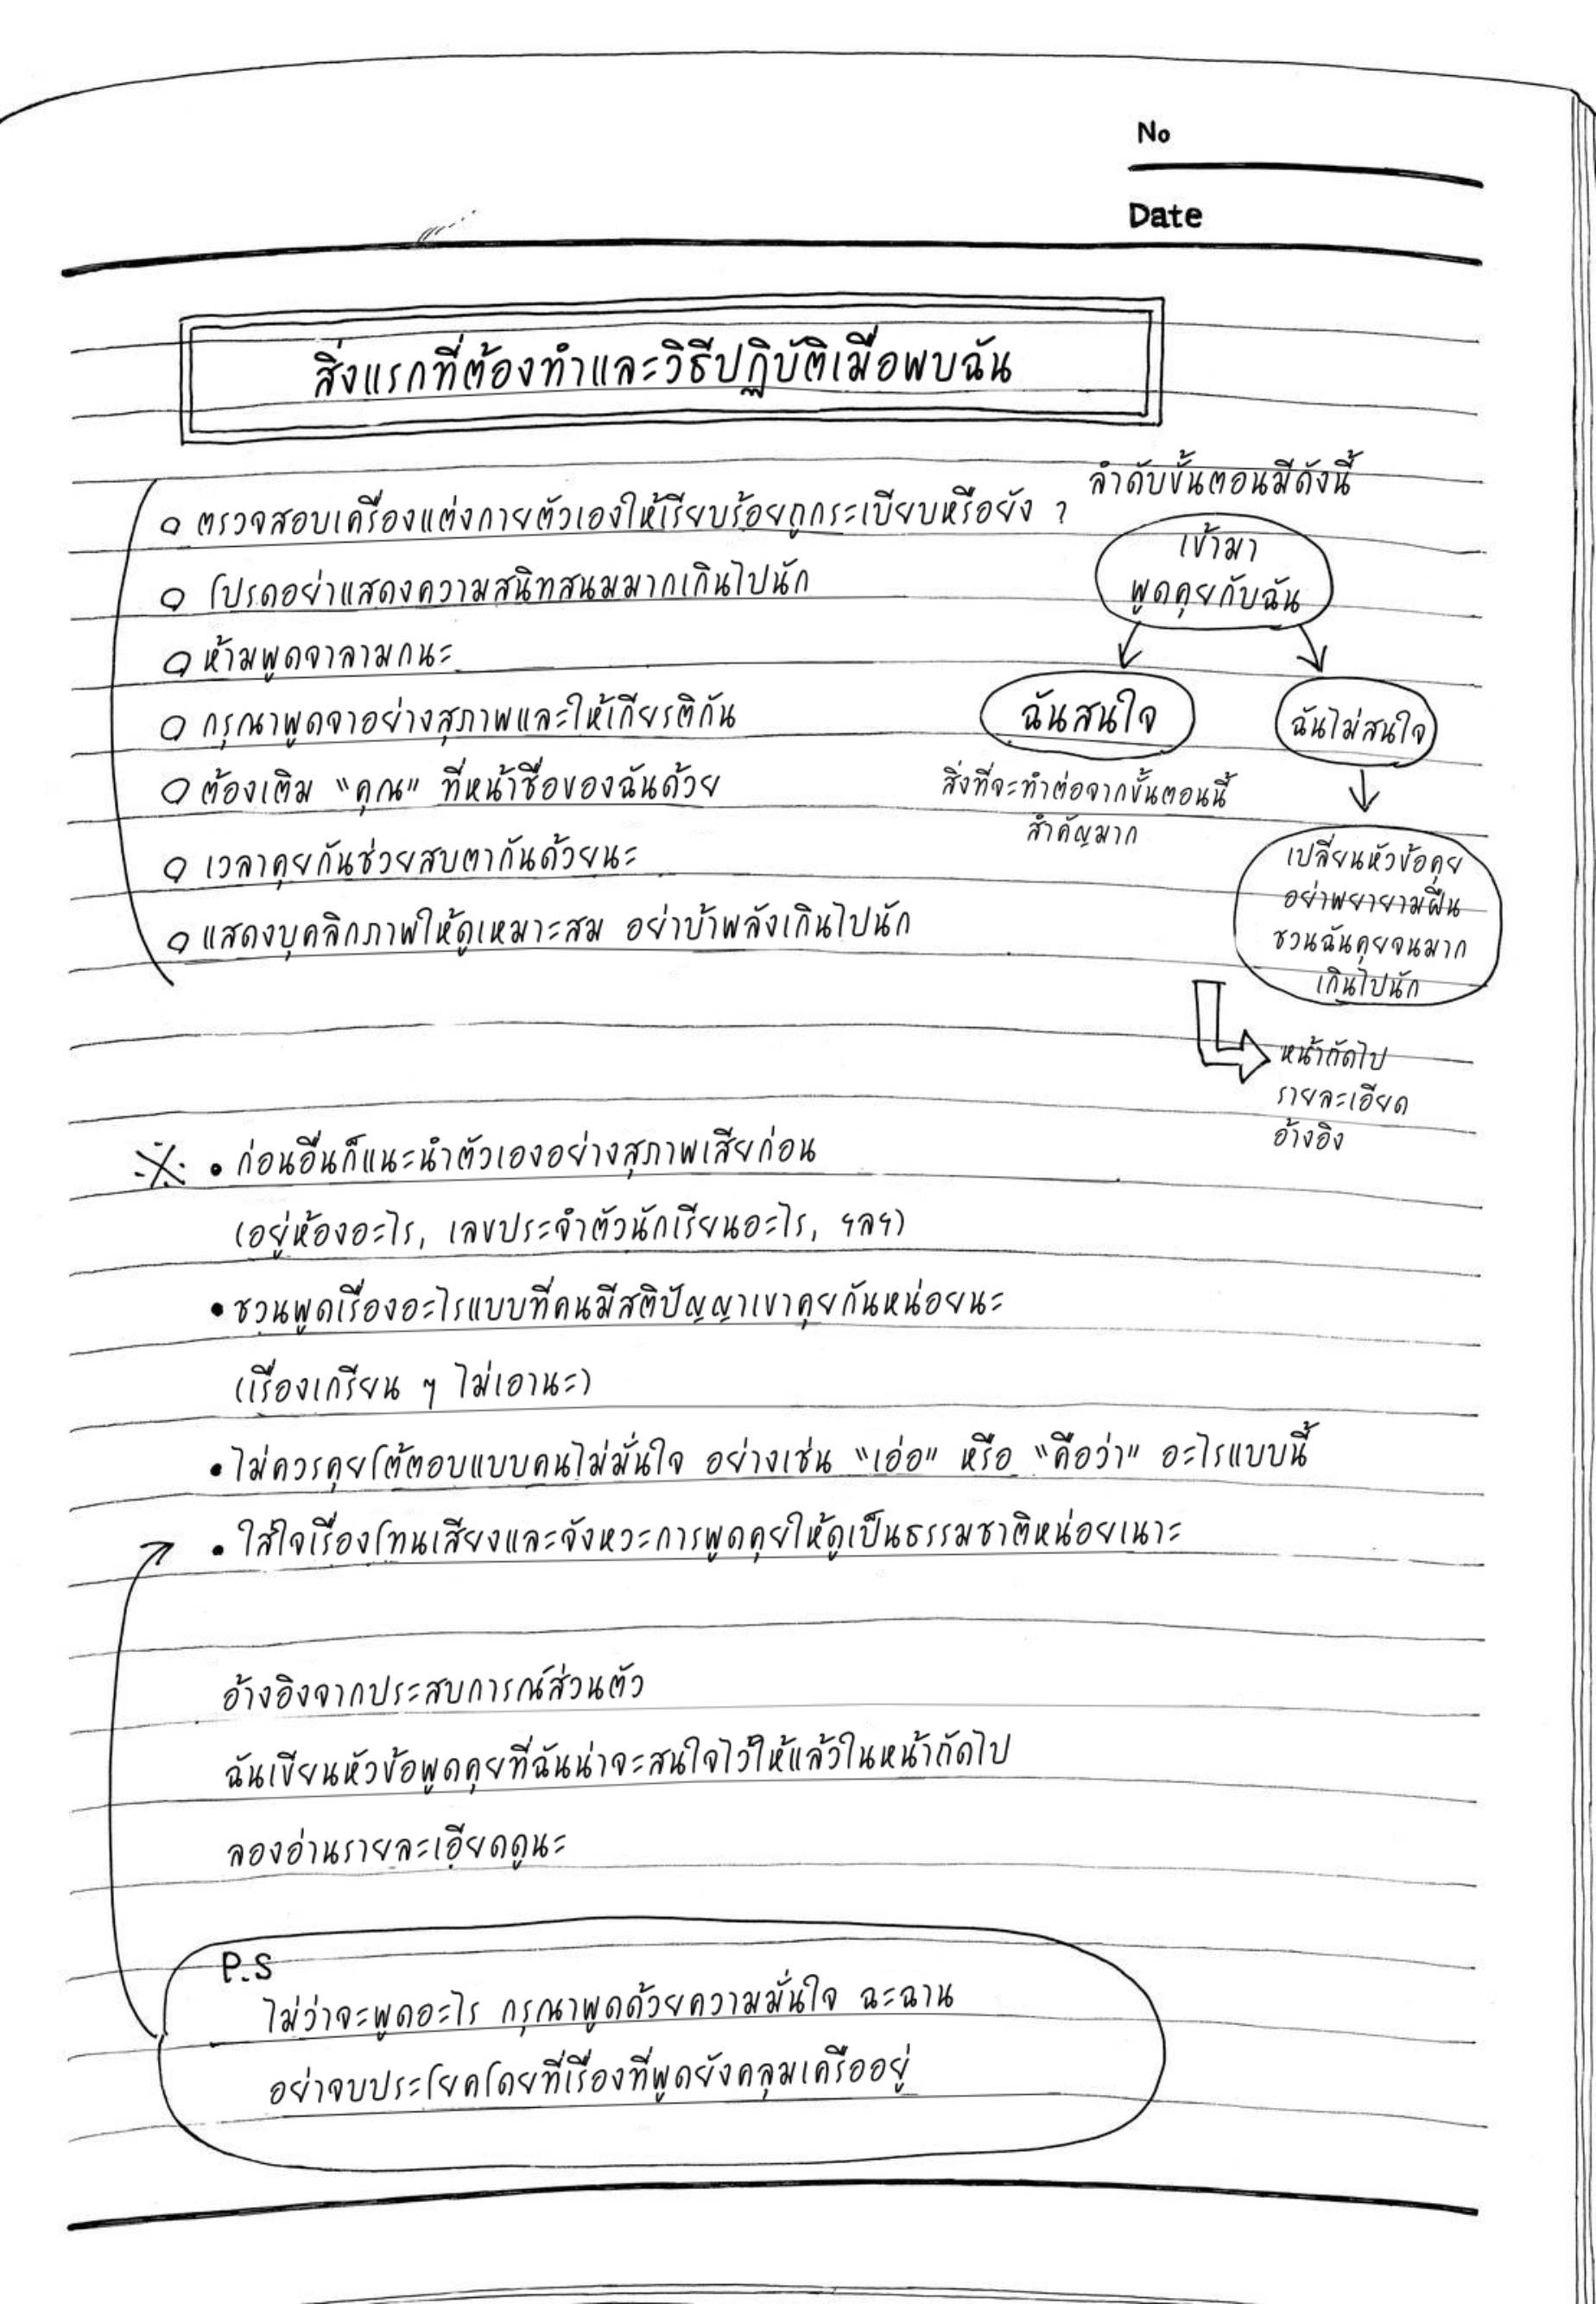 No
Date
สิ่งแรกที่ต้องทำและวิธีปฏิบัติเมื่อพบฉัน
○ ตรวจสอบเครื่องแต่งกายตัวเองให้เรียบร้อยถูกระเบียบหรือยัง ?
○ โปรดอย่าแสดงความสนิทสนมมากเกินไปนัก
○ ห้ามพูดจาลามกนะ
○ กรุณาพูดจาอย่างสุภาพและให้เกียรติกัน
○ ต้องเติม "คุณ" ที่หน้าชื่อของฉันด้วย
○ เวลาคุยกันช่วยสบตากันด้วยนะ
○ แสดงบุคลิกภาพให้ดูเหมาะสม อย่าบ้าพลังเกินไปนัก
ลำดับขั้นตอนมีดังนี้
เข้ามา
พูดคุยกับฉัน
ฉันสนใจ
ฉันไม่สนใจ
สิ่งที่จะทำต่อจากขั้นตอนนี้
สำคัญมาก
เปลี่ยนหัวข้อคุย
อย่าพยายามฝืน
ชวนฉันคุยจนมาก
เกินไปนัก
หน้าถัดไป
รายละเอียด
อ้างอิง
※ • ก่อนอื่นก็แนะนำตัวเองอย่างสุภาพเสียก่อน
(อยู่ห้องอะไร, เลขประจำตัวนักเรียนอะไร, ฯลฯ)
• ชวนพูดเรื่องอะไรแบบที่คนมีสติปัญญาเขาคุยกันหน่อยนะ
(เรื่องเกรียน ๆ ไม่เอานะ)
• ไม่ควรคุยโต้ตอบแบบคนไม่มั่นใจ อย่างเช่น "เอ่อ" หรือ "คือว่า" อะไรแบบนี้
• ใส่ใจเรื่องโทนเสียงและจังหวะการพูดคุยให้ดูเป็นธรรมชาติหน่อยเนาะ
อ้างอิงจากประสบการณ์ส่วนตัว
ฉันเขียนหัวข้อพูดคุยที่ฉันน่าจะสนใจไว้ให้แล้วในหน้าถัดไป
ลองอ่านรายละเอียดดูนะ
P.S
ไม่ว่าจะพูดอะไร กรุณาพูดด้วยความมั่นใจ ฉะฉาน
อย่าจบประโยคโดยที่เรื่องที่พูดยังคลุมเครืออยู่